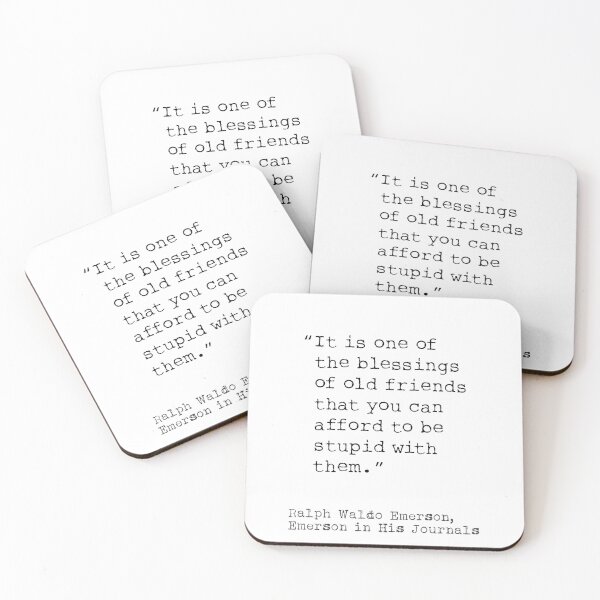 “It is one of
the blessings
of old friends
that you can
be
“It is one of
the blessings
of old friends
that you can
afford to be
stupid with
them.”
“It is one of
the blessings
of old friends
that you can
afford to be
stupid with
them.”
Ralph Waldo
Emerson in
“It is one of
the blessings
of old friends
that you can
afford to be
stupid with
them.”
Ralph Waldo Emerson,
Emerson in His Journals